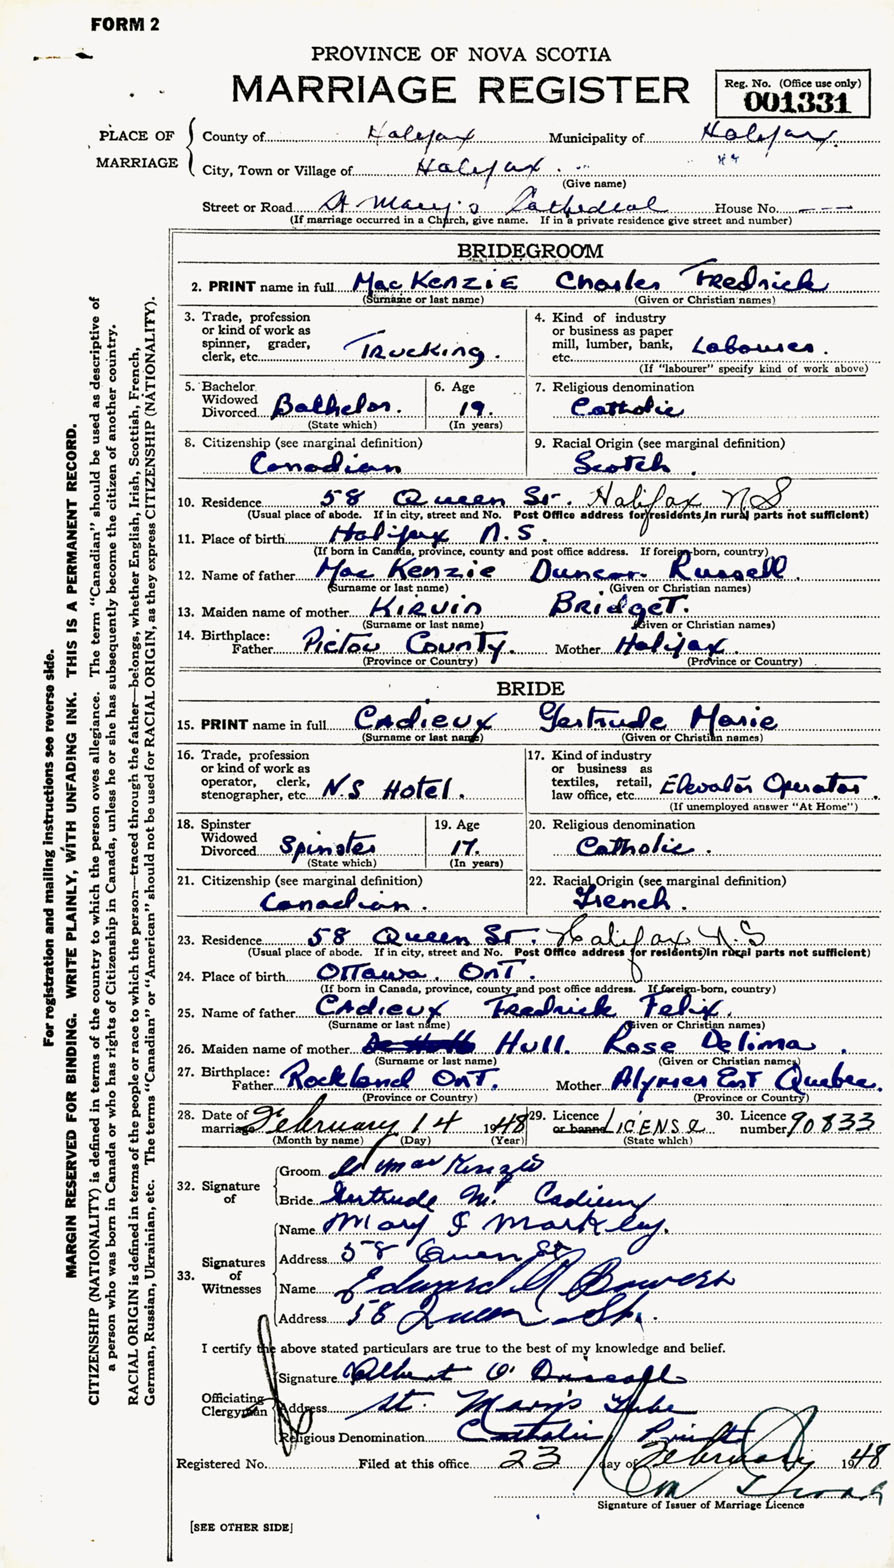 FORM 2
PROVINCE OF NOVA SCOTIA
MARRIAGE REGISTER
Reg. No. (Office use only)
001331
PLACE OF MARRIAGE
County of Halifax Municipality of Halifax
City, Town or Village of Halifax
(Give name)
Street or Road St Mary's Cathedral House No. ---
(If marriage occurred in a Church, give name. If in a private residence give street and number)
BRIDEGROOM
2. PRINT name in full MacKenzie Charles Fredrick
(Surname or last name) (Given or Christian names)
3. Trade, profession or kind of work as spinner, grader, clerk, etc. Trucking.
4. Kind of industry or business as paper mill, lumber, bank, etc. Labourer.
(If "labourer" specify kind of work above)
5. Bachelor Widowed Divorced Bathelor.
(State which)
6. Age 19.
(In years)
7. Religious denomination Catholic
8. Citizenship (see marginal definition) Canadian
9. Racial Origin (see marginal definition) Scotch.
10. Residence 58 Queen St. Halifax NS
(Usual place of abode. If in city, street and No. Post Office address for residents in rural parts not sufficient)
11. Place of birth Halifax N.S.
(If born in Canada, province, county and post office address. If foreign-born, country)
12. Name of father MacKenzie Duncan Russell.
(Surname or last name) (Given or Christian names)
13. Maiden name of mother Kirvin Bridget.
(Surname or last name) (Given or Christian names)
14. Birthplace: Father Pictou County. Mother Halifax.
(Province or Country) (Province or Country)
BRIDE
15. PRINT name in full Cadieux Gertrude Marie
(Surname or last name) (Given or Christian names)
16. Trade, profession or kind of work as operator, clerk, stenographer, etc. N.S Hotel.
17. Kind of industry or business as textiles, retail, law office, etc. Elevator Operator.
(If unemployed answer "At Home")
18. Spinster Widowed Divorced Spinster
(State which)
19. Age 17.
(In years)
20. Religious denomination Catholic.
21. Citizenship (see marginal definition) Canadian.
22. Racial Origin (see marginal definition) French.
23. Residence 58 Queen St. Halifax N.S
(Usual place of abode. If in city, street and No. Post Office address for residents in rural parts not sufficient)
24. Place of birth Ottawa. Ont.
(If born in Canada, province, county and post office address. If foreign-born, country)
25. Name of father Cadieux Fredrick Felix.
(Surname or last name) (Given or Christian names)
26. Maiden name of mother Hull. Rose Delima.
(Surname or last name) (Given or Christian names)
27. Birthplace: Father Rockland Ont. Mother Alymer East Quebec.
(Province or Country) (Province or Country)
28. Date of marriage February 14 1948
(Month by name) (Day) (Year)
29. Licence or banns LICENSE
(State which)
30. Licence number 90833
32. Signature of
Groom C MacKenzie
Bride Gertrude M. Cadieux
33. Signatures of Witnesses
Name Mary J Markley.
Address 58 Queen St
Name Edward Bowers
Address 58 Queen St.
I certify the above stated particulars are true to the best of my knowledge and belief.
Officiating Clergyman
Signature Albert O'Driscoll
Address St. Mary's Glebe
Religious Denomination Catholic Priest
Registered No. Filed at this office 23 day of February 1948
Signature of Issuer of Marriage Licence
[SEE OTHER SIDE]
For registration and mailing instructions see reverse side.
MARGIN RESERVED FOR BINDING. WRITE PLAINLY, WITH UNFADING INK. THIS IS A PERMANENT RECORD.
CITIZENSHIP (NATIONALITY) is defined in terms of the country to which the person owes allegiance. The term "Canadian" should be used as descriptive of
a person who was born in Canada or who has rights of Citizenship in Canada, unless he or she has subsequently become the citizen of another country.
RACIAL ORIGIN is defined in terms of the people or race to which the person—traced through the father—belongs, whether English, Irish, Scottish, French,
German, Russian, Ukrainian, etc. The terms "Canadian" or "American" should not be used for RACIAL ORIGIN, as they express CITIZENSHIP (NATIONALITY).